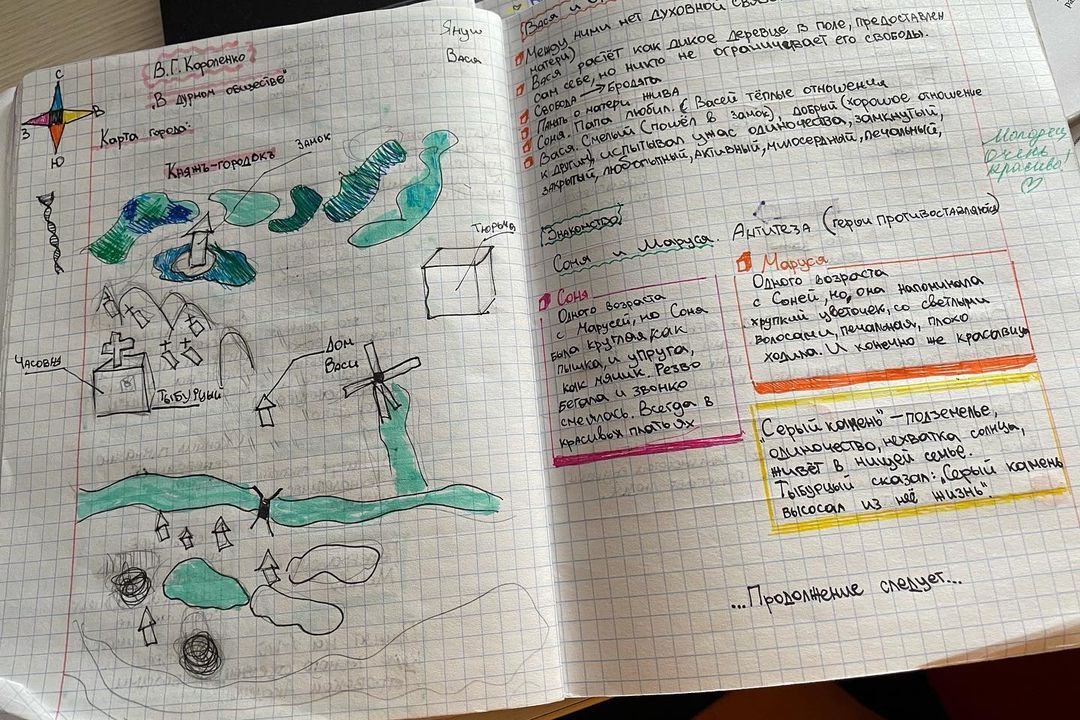 Януш
Вася
В.Г. Короленко
„В дурном обществе"
С
В
З
Ю
Карта города:
Княжъ-городокъ
замок
Тюрьма
Часовня
Тыбурций
Дом
Васи
Вася и
Между ними нет духовной
матери)
Вася растёт как дикое деревце в поле, предоставлен
сам себе, но никто не ограничевает его свободы.
Свобода → Бродяга
Память о матери жива
Соня. Папа любил. С Васей тёплые отношения
Вася. Смелый (пошёл в замок), добрый (хорошое отношение
к другим), испытывал ужас одиночества, замкнутый,
закрытый, любопытный, активный, милосердный, печальный,
Молодец,
очень
красиво!
Знакомство
Соня и Маруся. Антитеза (герои противоставляются)
Соня
Одного возраста
с Марусей, но Соня
была круглая как
пышка и упруга,
как мячик. Резво
бегала и звонко
смеялась. Всегда в
красивых платьях
Маруся
Одного возраста
с Соней, но, она напоминала
хрупкий цветочек, со светлыми
волосами, печальная, плохо
ходила. И конечно же красавица
„Серый камень" – подземелье,
одиночество, нехватка солнца,
живёт в нищей семье.
Тыбурций сказал: „Серый камень
высосал из неё жизнь".
...Продолжение следует...